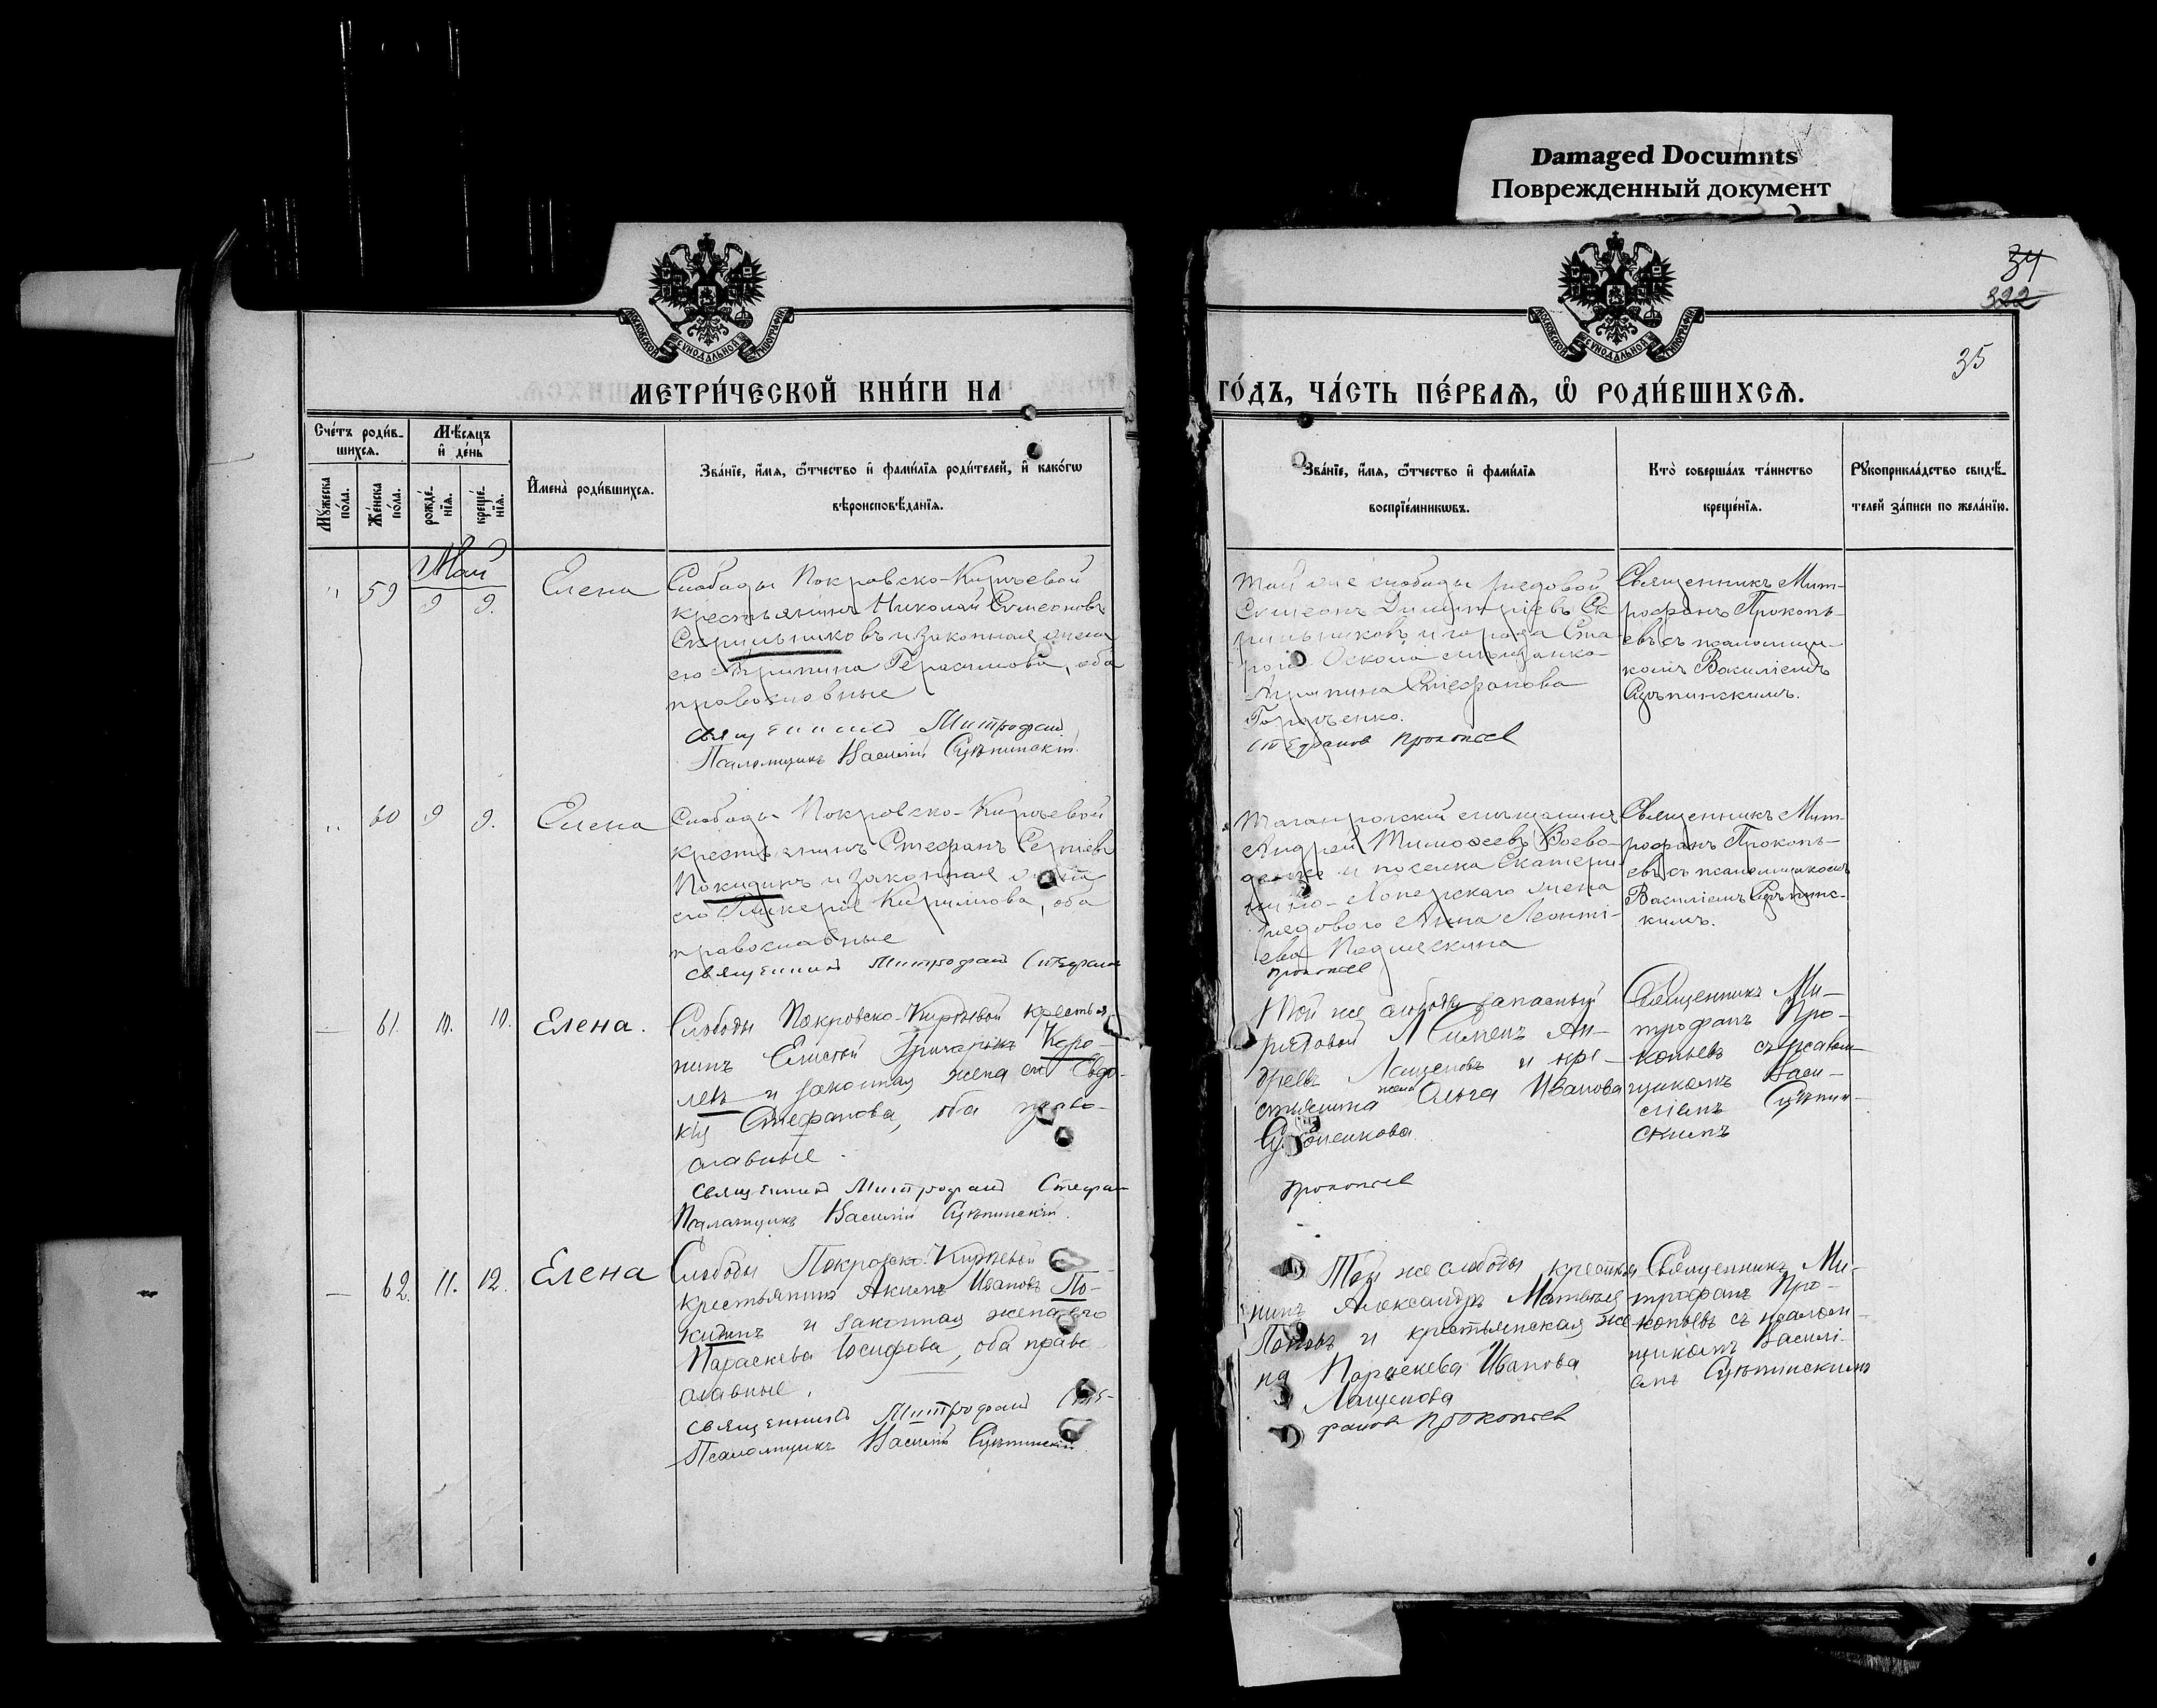 Damaged Documnts
Поврежденный документ
34
322
35
МОСКОВСКОЙ СѴНОДАЛЬНОЙ ТИПОГРАФІИ
МОСКОВСКОЙ СѴНОДАЛЬНОЙ ТИПОГРАФІИ
МЕТРИ́ЧЕСКОЙ КНИ́ГИ НА
ГО́ДЪ, ЧА́СТЬ ПЕ́РВАѦ, Ѡ҆ РОДИ́ВШИХСѦ.
Сче́тъ роди́в-
шихсѧ.
Мѣ́сѧцъ
и҆ де́нь
Мꙋ́жеска
по́ла.
Же́нска
по́ла.
рожде́-
нїѧ.
креще́-
нїѧ.
И҆мена̀ роди́вшихсѧ.
Зва́нїе, и҆́мѧ, ѻ҆́тчество и҆ фамі́лїѧ роди́телей, и҆ како́гѡ
вѣроисповѣ́данїѧ.
Зва́нїе, и҆́мѧ, ѻ҆́тчество и҆ фамі́лїѧ
воспрїе́мникѡвъ.
Кто̀ соверша́лъ та́инство
креще́нїѧ.
Рꙋкоприкла́дство свидѣ́-
телей за́писи по жела́нїю.
Май
" 59 9 9. Елена
Слободы Покровско-Киръевой
крестьянинъ Николай Сѵмеоновъ
Скрильниковъ и законная жена
его Агрипина Герасимова, оба
православные
Священникъ Митрофанъ
Псаломщикъ Василій Сцѣпинскій.
Той же слободы рядовой
Сѵмеонъ Димитріевъ Ск
рильниковъ и города Ста-
раго Оскола мѣщанка
Агрипина Стефанова
Стефановъ Прокопьев
Священникъ Мит-
рофанъ Прокопь-
евъ съ псаломщи-
комъ Василіемъ
Сцѣпинскимъ.
" 60 9 9. Елена
Слободы Покровско-Киръевой
крестьянинъ Стефанъ Сергіевъ
Покидинъ и законная жена
его Гликерія Кирилова, оба
православные
Священникъ Митрофанъ Стефанов
Таганрогскій мѣщанинъ
Андрей Тимоѳеевъ Воево-
и поселка Екатери
нино-Хоперскаго жена
рядового Анна Леонті-
ева
Прокопьев
Священникъ Мит-
рофанъ Прокопь-
евъ съ псаломщикомъ
Василіемъ Сцѣпинс-
кимъ.
— 61. 10. 10. Елена.
Слободы Покровско-Киръевой крестья-
нинъ Елисей Коро-
левъ и законная жена его Евдо-
кія Стефанова, оба право-
славные.
Священникъ Митрофанъ Стефан
Псаломщикъ Василій Сцѣпинскій.
Той же слободы запасный
рядовой Симеонъ Ан-
дреевъ Лащеновъ и кре-
стьянина жена Ольга Иванова
Прокопьев
Священникъ Ми-
трофанъ Про-
копьевъ съ псалом-
щикомъ Васи-
ліемъ Сцѣпин-
скимъ
— 62. 11. 12. Елена
Слободы Покровско-Киръевой
крестьянинъ Акимъ Ивановъ По-
кидинъ и законная жена его
Параскева Іосифова, оба право-
славные.
Священникъ Митрофанъ Сте-
Псаломщикъ Василій Сцѣпинскій.
Той же слободы крестья
нинъ Александръ Матвѣевъ
Поповъ и крестьянская же
на Параскева Иванова
Лащенова
фановъ Прокопьев
Священникъ Ми-
трофанъ Про-
копьевъ съ псалом-
щикомъ Василі-
емъ Сцѣпинскимъ